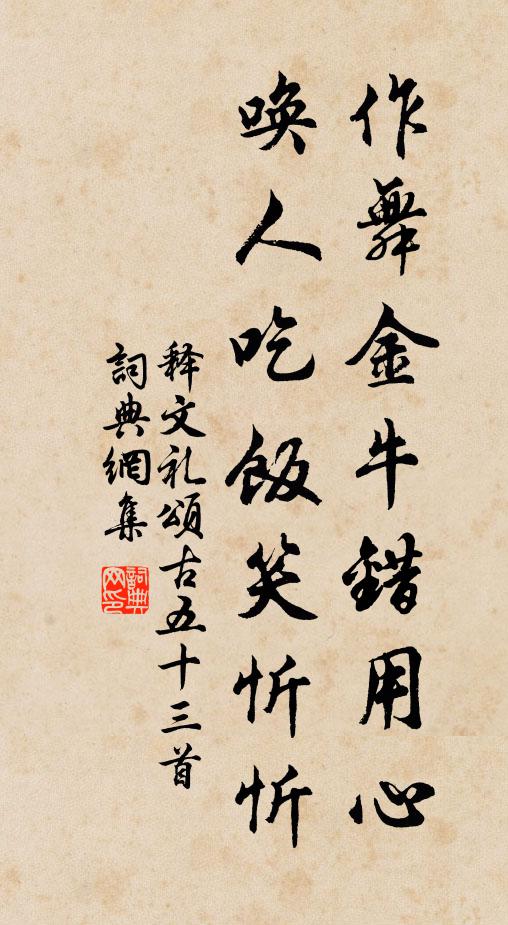 作舞金牛錯用心
喚人吃飯笑忻忻
释文礼頌古五十三首
詞典網集
詞典网印